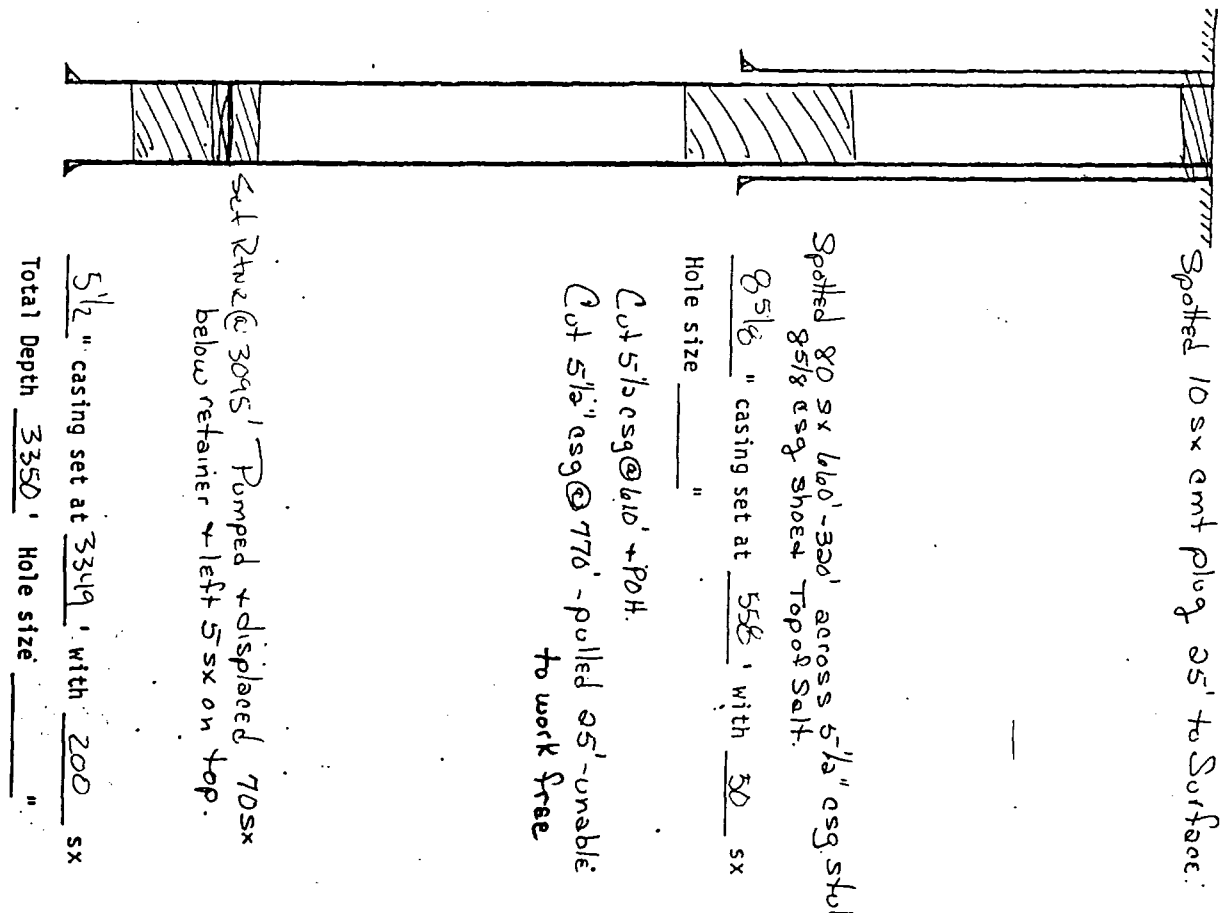 Spotted 10 sx cmt plug 25' to Surface.
Spotted 80 sx 660'-320' across 5-1/2" csg. stub
8 5/8 csg shoe & Top of Salt.
8 5/8 " casing set at 558 ' with 50 sx
Hole size "
Cut 5 1/2 csg @ 610' + POH.
Cut 5 1/2" csg @ 770' - pulled 25' - unable
to work free
Set Rtnr @ 3095' Pumped & displaced 70 sx
below retainer & left 5 sx on top.
5 1/2 " casing set at 3349 ' with 200 sx
Total Depth 3350 ' Hole size "